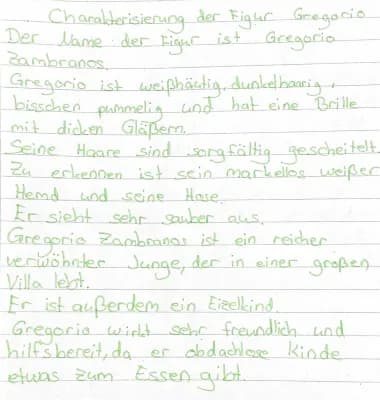 Charakterisierung der Figur Gregorio
Der Name der Figur ist Gregorio
Zambranos.
Gregorio ist weißhäutig, dunkelhaarig,
bisschen pummelig und hat eine Brille
mit dicken Gläßern.
Seine Haare sind sorgfältig gescheitelt.
Zu erkennen ist sein markellos weißer
Hemd und seine Hose.
Er sieht sehr sauber aus.
Gregorio Zambranos ist ein reicher
verwöhnter Junge, der in einer großen
Villa lebt.
Er ist außerdem ein Eizelkind.
Gregorio wirkt sehr freundlich und
hilfsbereit, da er obdachlose Kinde
etwas zum Essen gibt.